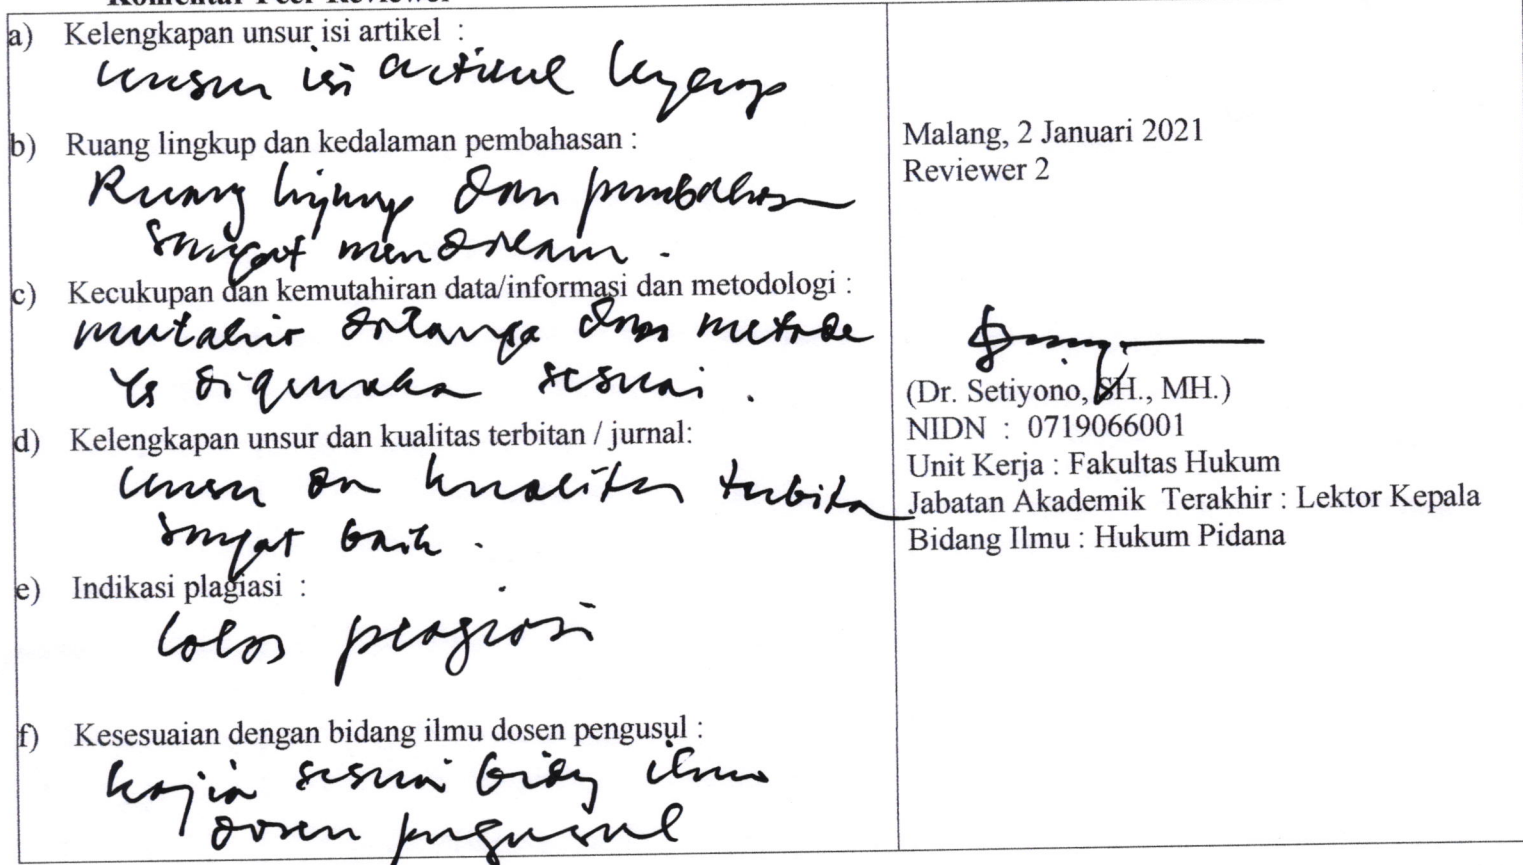 Komentar Peer Reviewer
a) Kelengkapan unsur isi artikel :
unsur isi artikel lengkap
b) Ruang lingkup dan kedalaman pembahasan :
Ruang lingkup dan pembahasan
sangat mendalam .
c) Kecukupan dan kemutahiran data/informasi dan metodologi :
mutahir datanya dan metode
yg digunaka sesuai .
d) Kelengkapan unsur dan kualitas terbitan / jurnal:
unsur dn kualitas terbitan
sangat baik .
e) Indikasi plagiasi :
lolos plagiasi
f) Kesesuaian dengan bidang ilmu dosen pengusul :
kajian sesuai bidang ilmu
dosen pengusul
Malang, 2 Januari 2021
Reviewer 2
(Dr. Setiyono, SH., MH.)
NIDN : 0719066001
Unit Kerja : Fakultas Hukum
Jabatan Akademik Terakhir : Lektor Kepala
Bidang Ilmu : Hukum Pidana